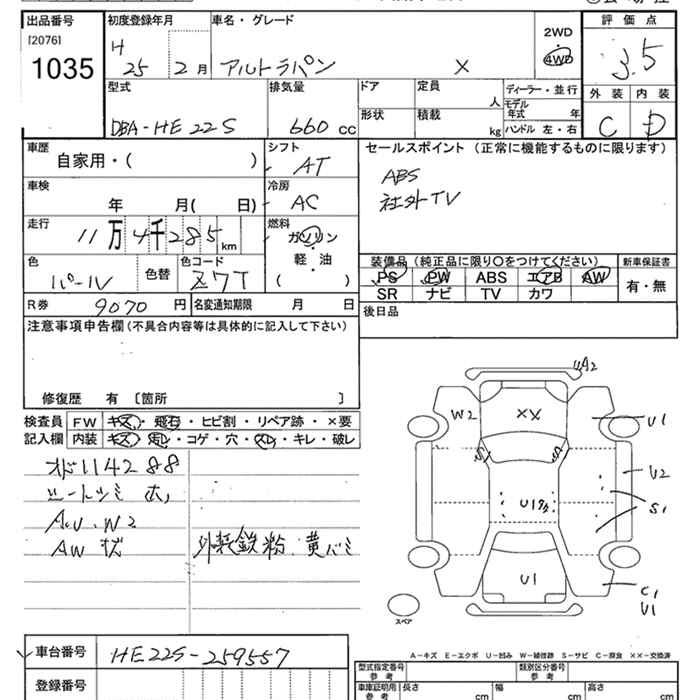 出品番号 初度登録年月 車名・グレード 2WD 評価点
[2076] 4WD
1035 H 25 2月 アルトラパン X 3.5
型式 排気量 ドア 定員 人 ディーラー・並行 外装 内装
モデル年式 年
DBA-HE22S 660cc 形状 積載 kg ハンドル 左・右 C D
車歴 シフト セールスポイント (正常に機能するものに限ります)
自家用・( ) AT ABS
車検 冷房 社外TV
年 月( 日) AC
走行 燃料
11万4千285km ガソリン
軽・油
( )
色 色替 色コード 装備品 (純正品に限り○をつけてください) 新車保証書
パール Z7T PS PW ABS エアB AW 有・無
SR ナビ TV カワ
R券 9070円 名変通知期限 月 日 後日品
注意事項申告欄(不具合内容等は具体的に記入して下さい)
修復歴 有 [箇所 ]
検査員 FW キズ・飛石・ヒビ割・リペア跡・×要
記入欄 内装 キズ・汚レ・コゲ・穴・スレ・キレ・破レ
114288
AU.W2
AW
外装鉄粉
A2
W2 XX U1
U2
S1
U1
U1 C1
U1
スペア
A-キズ E-エクボ U-凹み W-補修跡 S-サビ C-腐食 ××-交換済
車台番号 HE22S-259557
型式指定番号 参考 類別区分番号 参考
登録番号 車庫証明用 参考 長さ cm 幅 cm 高さ cm